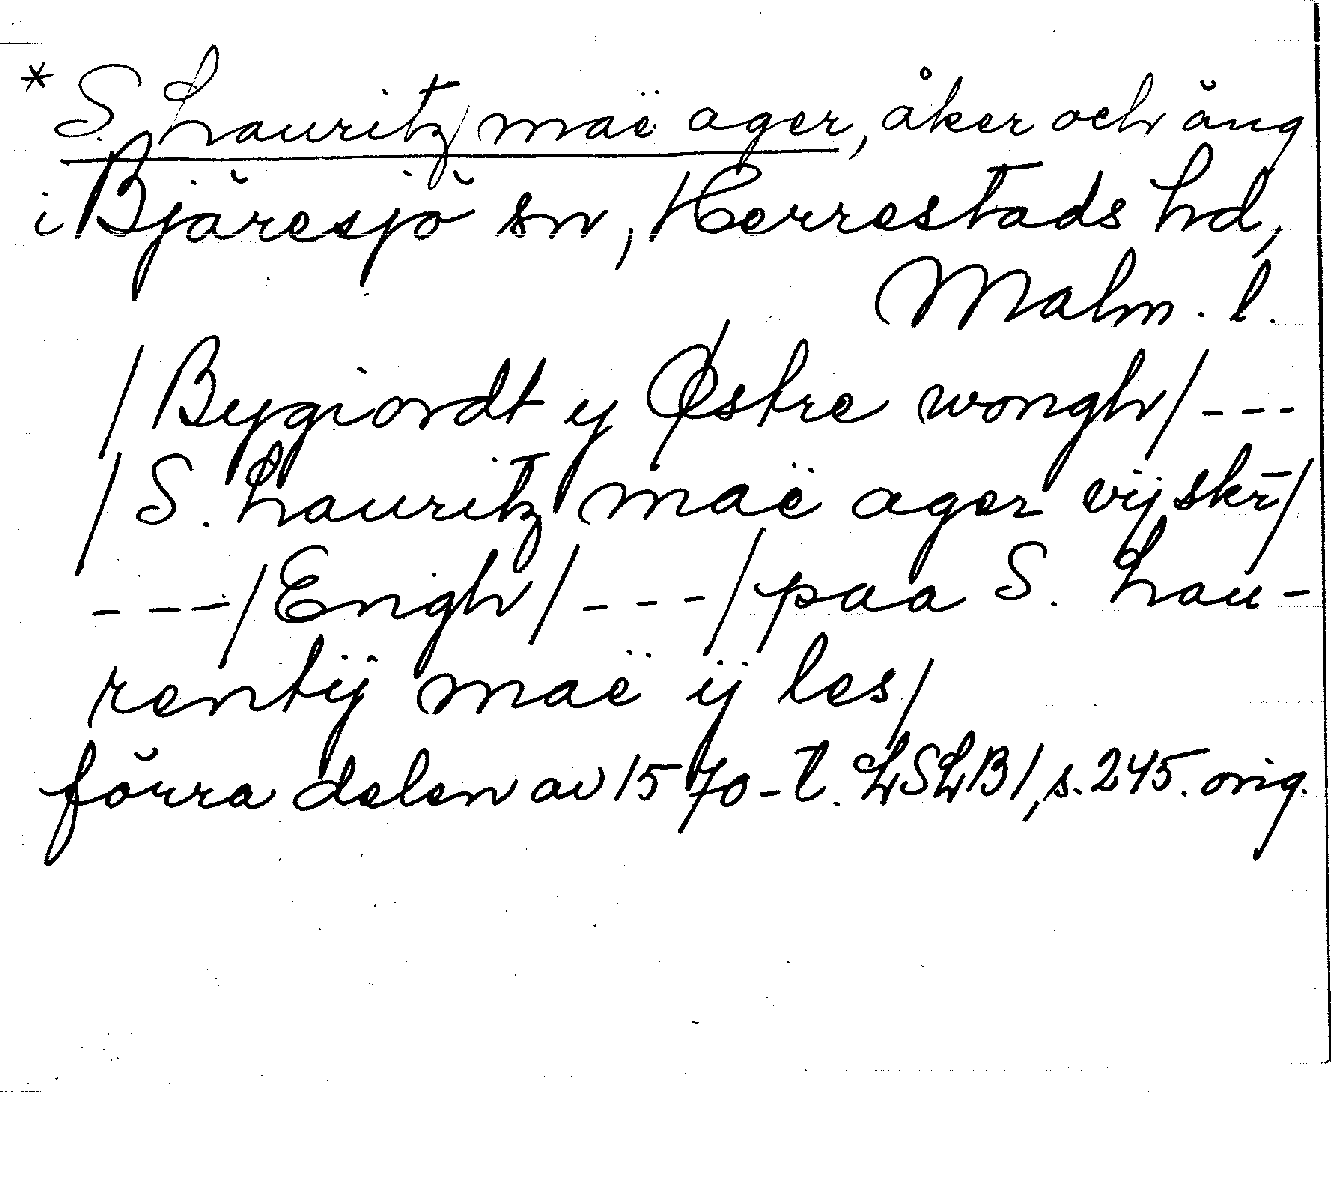 * S. Lauritz maë ager, åker och äng
i Bjäresjö sn, Herrestads hd,
Malm. l.
/Bygiordt y Østre wongh/---
/S. Lauritz maë ager vij skr̄/
---/Engh/---/paa S. Lau-
rentij maë ij les/
förra delen av 1570-t. LSLB1, s. 245. orig.